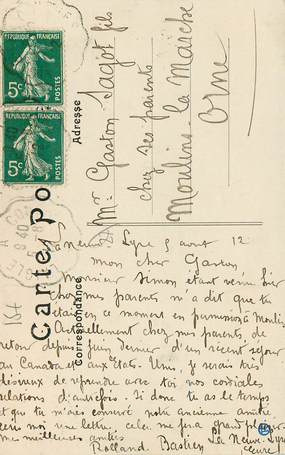 RÉPUBLIQUE FRANÇAISE
5c POSTES
RÉPUBLIQUE FRANÇAISE
5c POSTES
Carte Po
Correspondance
Adresse
Mr Gaston Sagot fils
chez ses parents
Moulins la Marche
Orne
La neuve Lyre 5 aout 12
mon cher Gaston
Monsieur Simon étant venu hier
chez mes parents m'a dit que tu
étais en ce moment en permission à Moulins
Actuellement chez mes parents, de
retour depuis juin dernier d'un récent séjour
au Canada et aux États. Unis, je serais très
désireux de reprendre avec toi nos cordiales
relations d'autrefois. Si donc tu as le temps
et que tu m'aies conservé notre ancienne amitié,
écris moi une lettre, cela me fera grand plaisir.
mes meilleures amitiés
Rolland Bastien
La Neuve-Lyre
(eure)